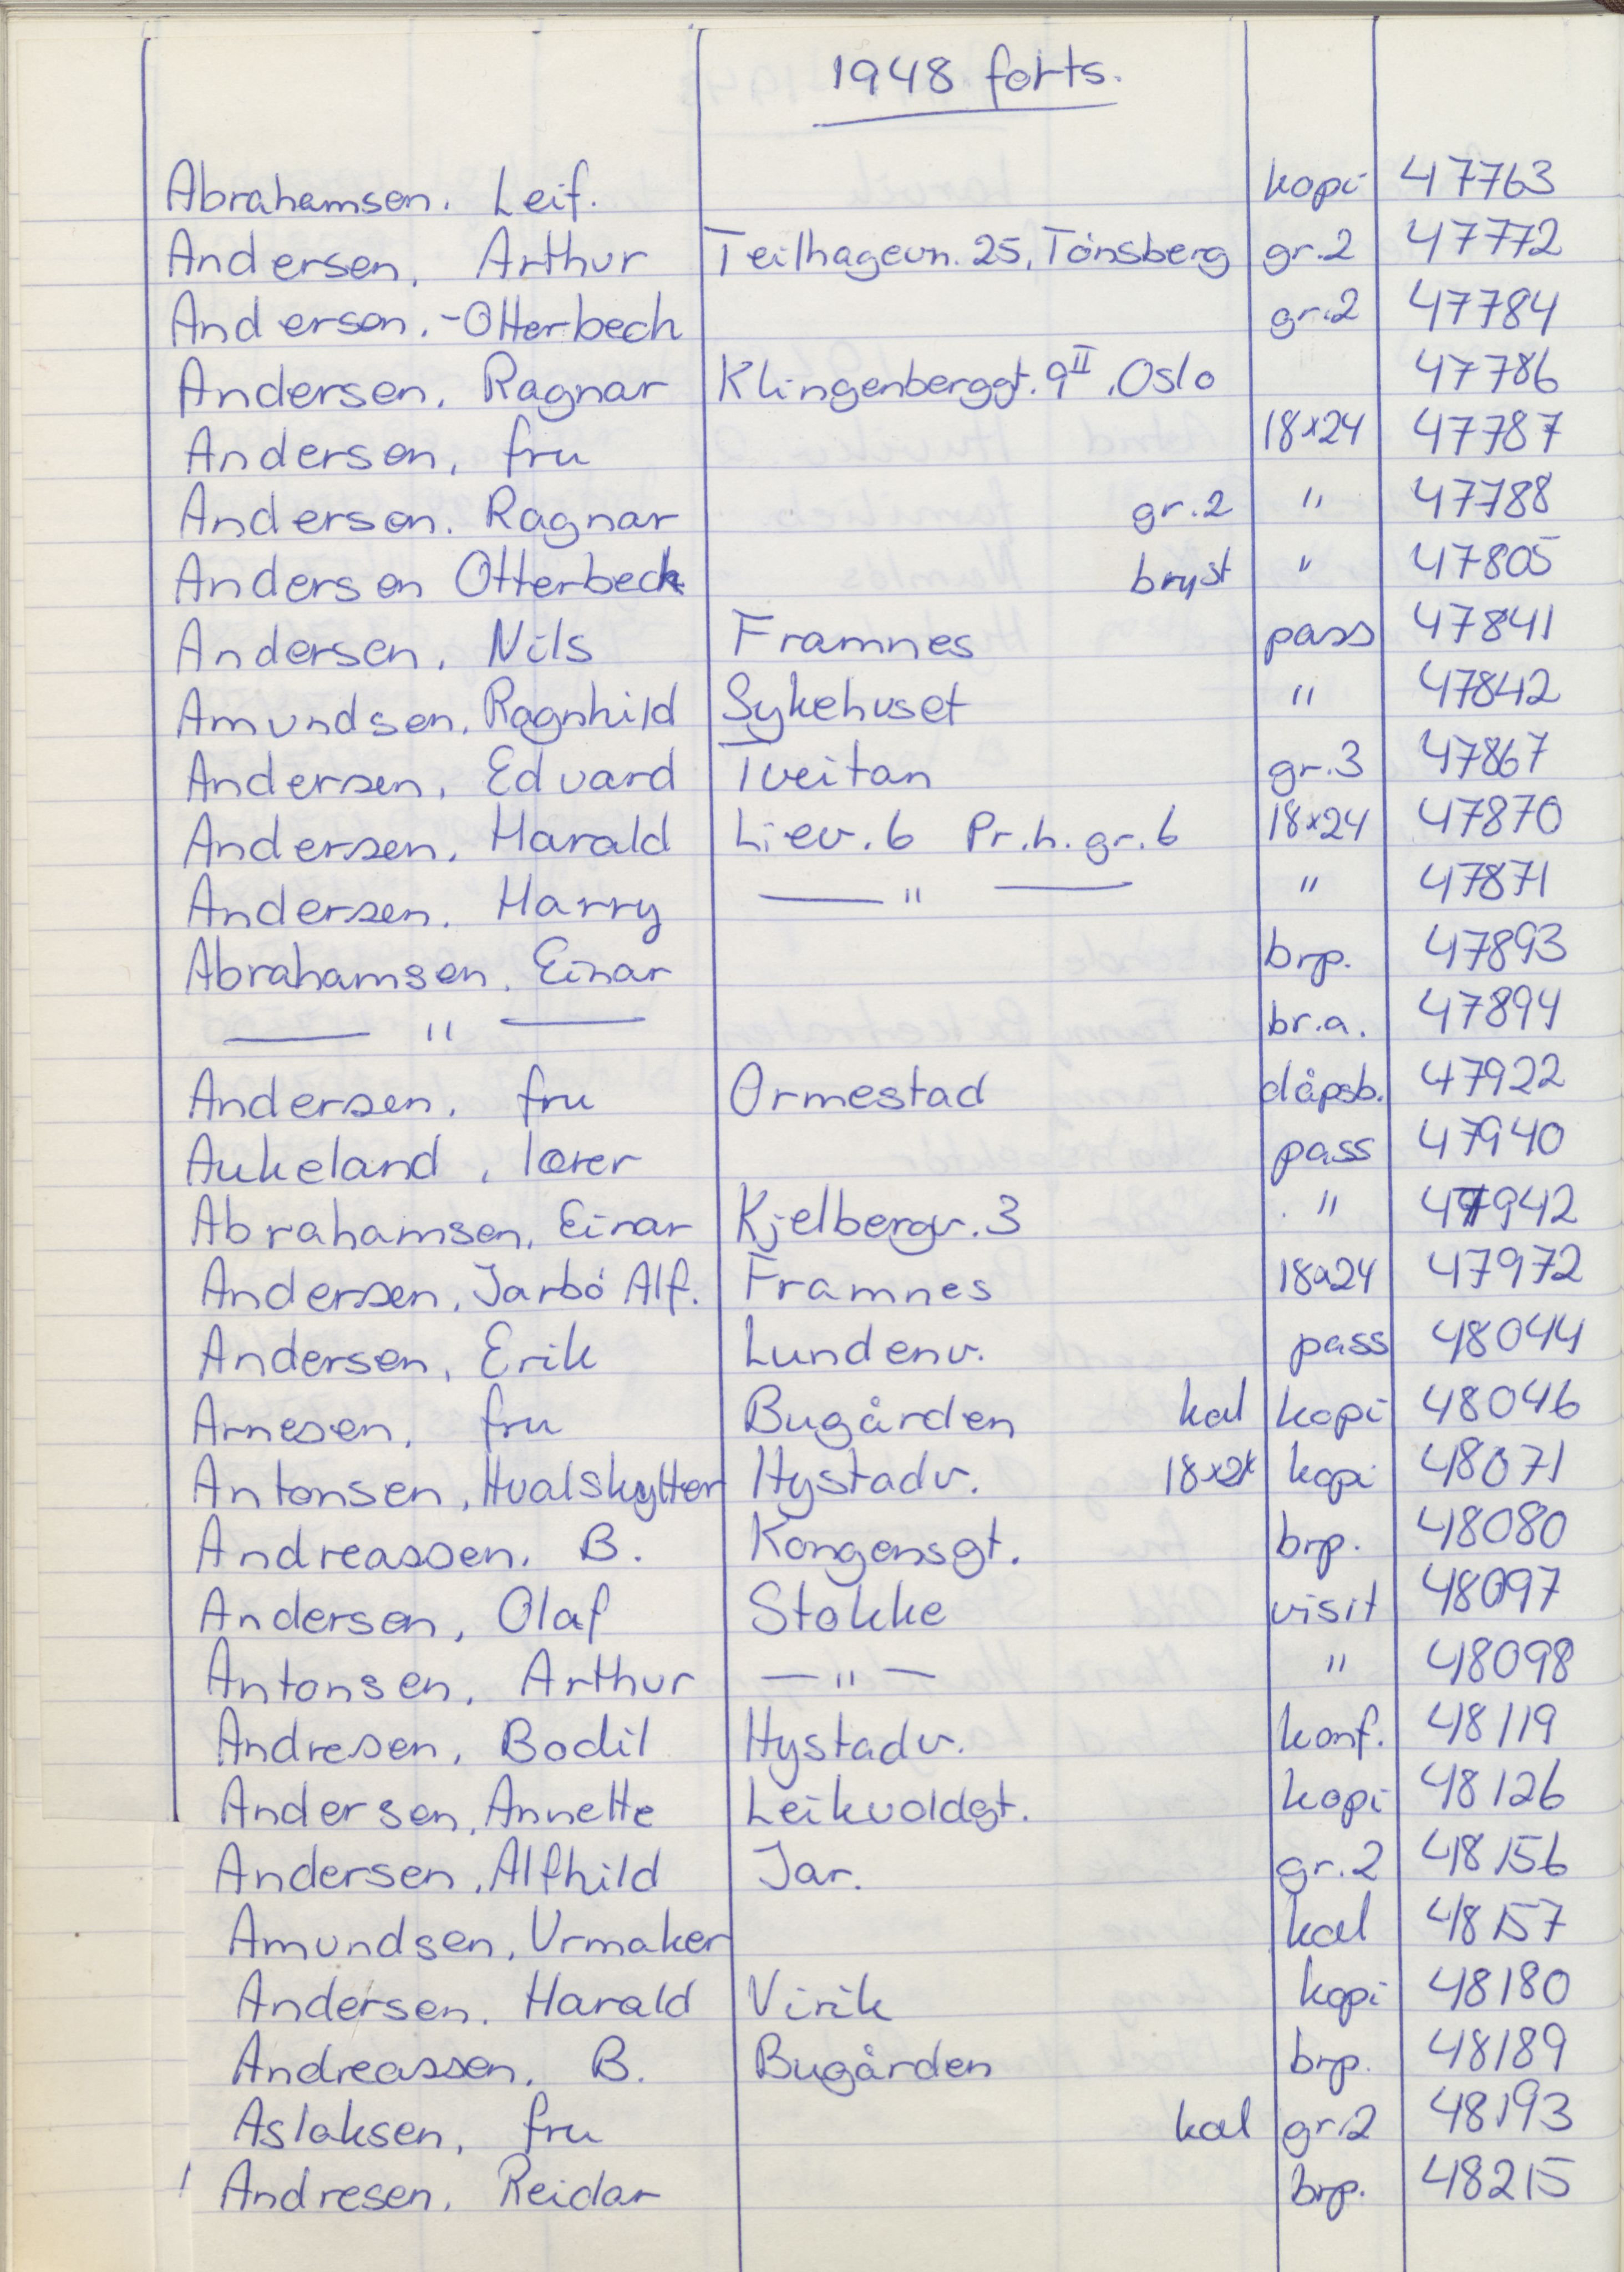 1948 forts.
Abrahamsen. Leif. kopi 47763
Andersen, Arthur Teilhagevn. 25, Tönsberg gr.2 47772
Andersen.-Otterbech gr.2 47784
Andersen, Ragnar Klingenberggt. 9 II, Oslo " 47786
Andersen, fru 18x24 47787
Andersen. Ragnar gr.2 " 47788
Andersen Otterbeck bryst " 47805
Andersen, Nils Framnes pass 47841
Amundsen, Ragnhild Sykehuset " 47842
Andersen, Edvard Tveitan gr.3 47867
Andersen, Harald Liev. 6 Pr.h.gr.6 18x24 47870
Andersen. Harry — " — " 47871
Abrahamsen, Einar brp. 47893
— " — br.a. 47894
Andersen, fru Ormestad dåpsb. 47922
Aukeland, lærer pass 47940
Abrahamsen, Einar Kjelbergv. 3 " 47942
Andersen, Jarbö Alf. Framnes 18x24 47972
Andersen, Erik Lundenv. pass 48044
Arnesen, fru Bugården kal kopi 48046
Antonsen, Hvalskytter Hystadv. 18x24 kopi 48071
Andreassen, B. Kongensgt. brp. 48080
Andersen, Olaf Stokke visit 48097
Antonsen, Arthur — " — " 48098
Andresen, Bodil Hystadv. konf. 48119
Andersen, Annette Leikvoldgt. kopi 48126
Andersen, Alfhild Jar. gr.2 48156
Amundsen, Urmaker kal 48157
Andersen, Harald Virik kopi 48180
Andreassen, B. Bugården brp. 48189
Aslaksen, fru kal gr.2 48193
Andresen, Reidar brp. 48215